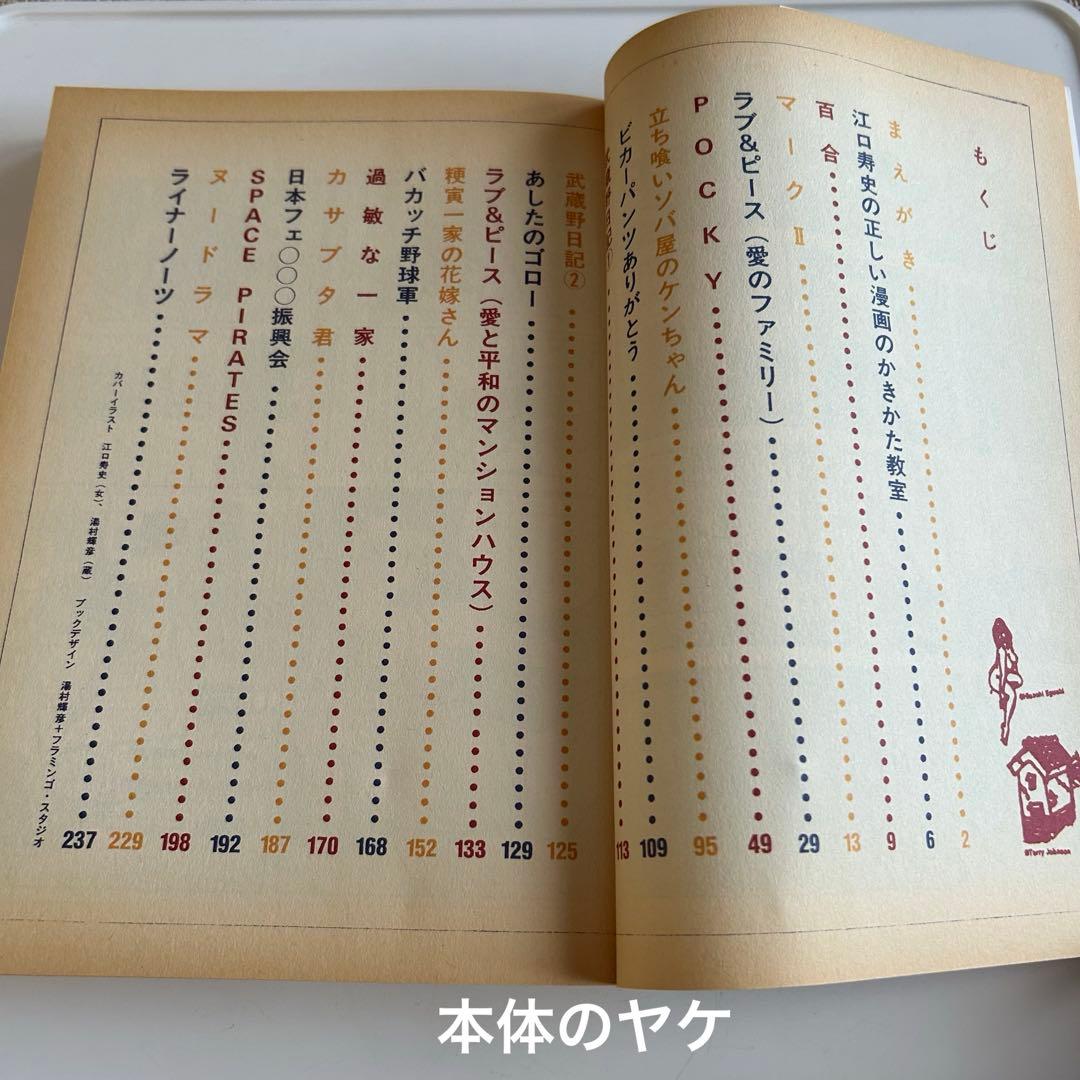 もくじ
まえがき 2
江口寿史の正しい漫画のかきかた教室 6
百合 9
マークⅡ 13
ラブ&ピース（愛のファミリー） 29
POCKY 49
立ち喰いソバ屋のケンちゃん 95
ピカーパンツありがとう 109
113
武蔵野日記② 125
あしたのゴロー 129
ラブ&ピース（愛と平和のマンションハウス） 133
粳寅一家の花嫁さん 152
バカッチ野球軍 168
過敏な一家 170
カサブタ君 187
日本フェ〇〇〇振興会 192
SPACE PIRATES 198
ヌードラマ 229
ライナーノーツ 237
カバーイラスト 江口寿史（女）、湯村輝彦（蔵） ブックデザイン 湯村輝彦＋フラミンゴ・スタジオ
©Hisashi Eguchi
©Terry Johnson
本体のヤケ